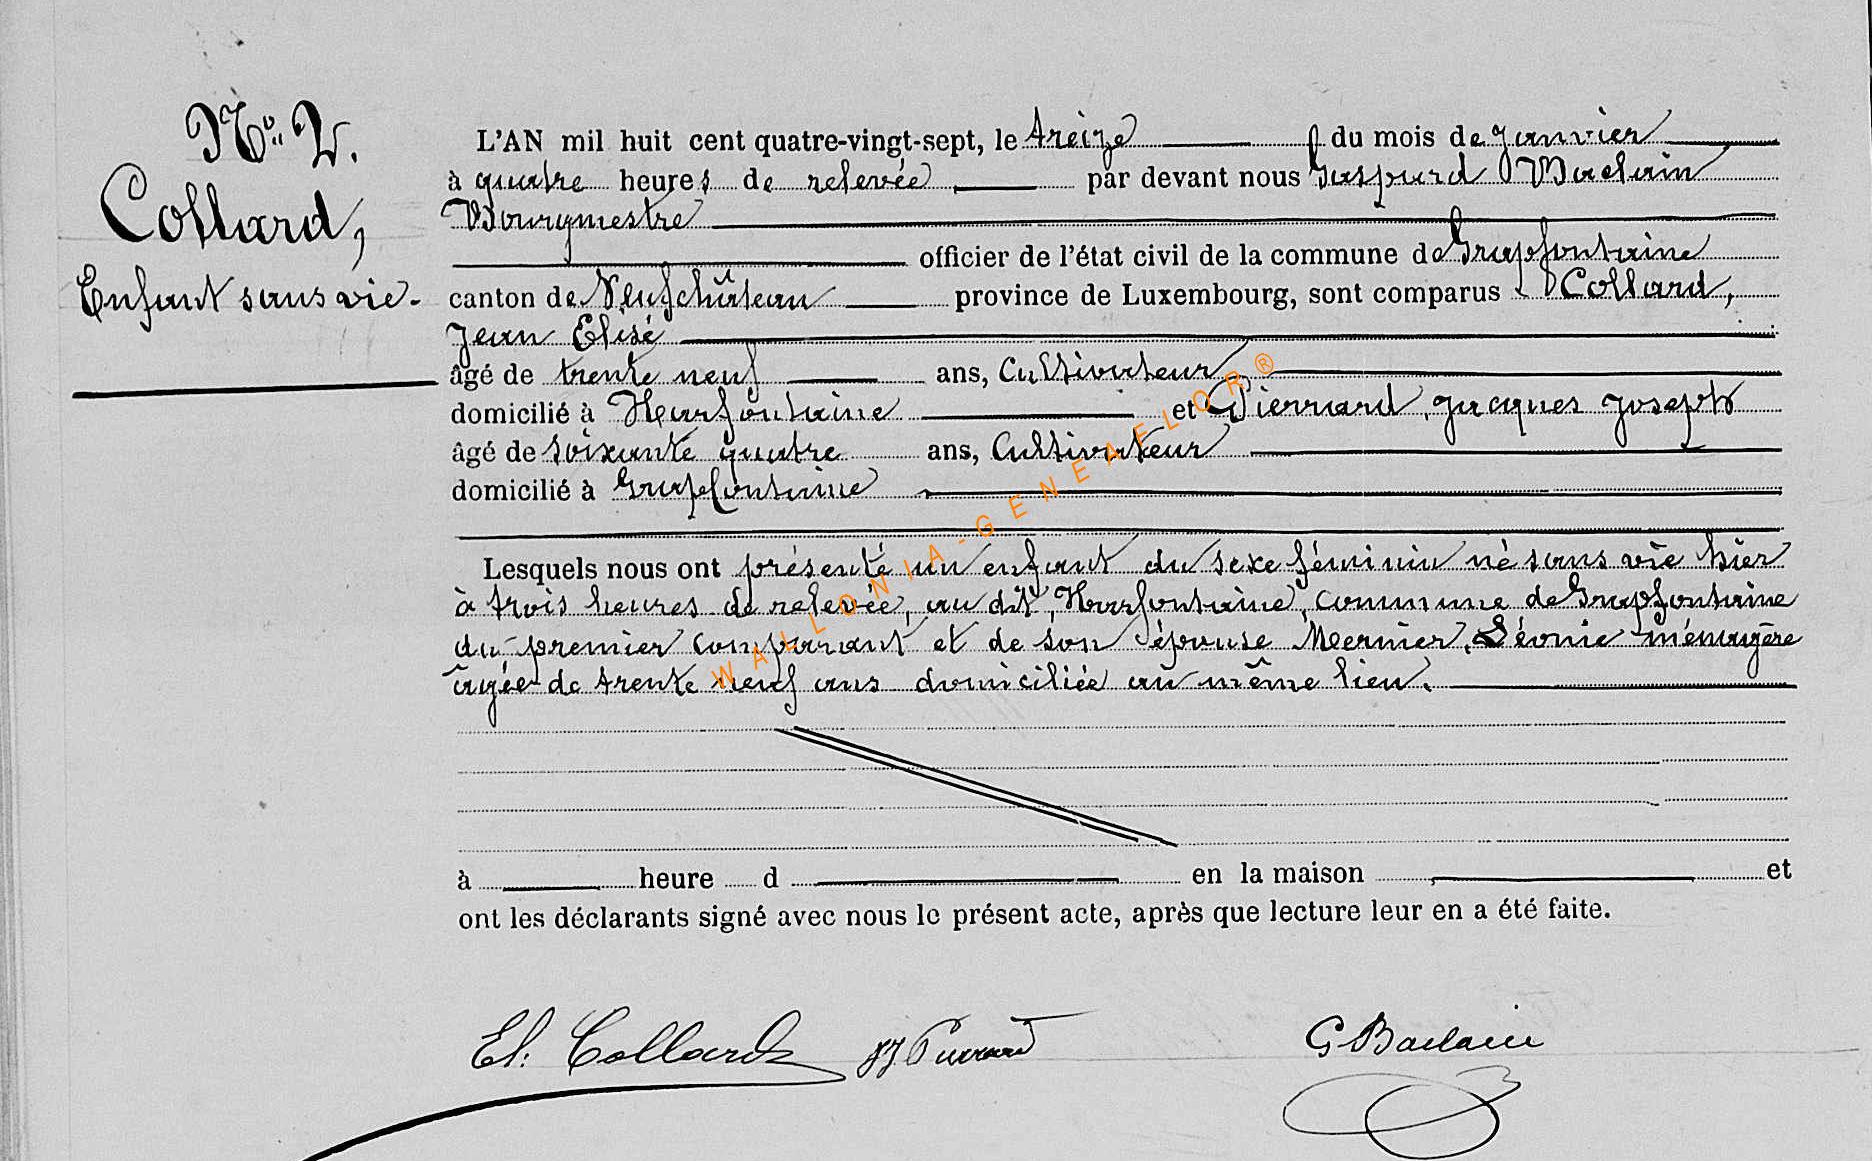 No. 2.
Collard,
Enfant sans vie.
L'AN mil huit cent quatre-vingt-sept, le treize du mois de Janvier
à quatre heures de relevée par devant nous Gaspard Baclain
Bourgmestre
officier de l'état civil de la commune de Grapfontaine
canton de Neufchâteau province de Luxembourg, sont comparus Collard,
Jean Elisé
âgé de trente neuf ans, Cultivateur
domicilié à Harfontaine et Pierrard, Jacques Joseph
âgé de soixante quatre ans, Cultivateur
domicilié à Grapfontaine
Lesquels nous ont présenté un enfant du sexe féminin né sans vie hier
à trois heures de relevée, au dit Harfontaine, commune de Grapfontaine
du premier comparant et de son épouse Meernier, Léonie ménagère
âgée de trente neuf ans domiciliée au même lieu.
à heure d en la maison et
ont les déclarants signé avec nous le présent acte, après que lecture leur en a été faite.
El. Collard JJ Pierrard G Baclain
WALLONIA-GENEAELOR®